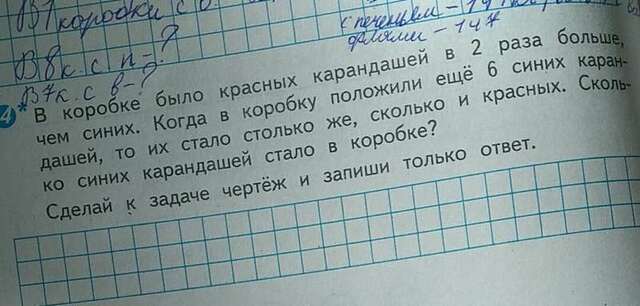 В 1 коробки с
с печеньем – 14
В 8 к. с п – ?
флями – 147
В 7 к. с в – ?
4 * В коробке было красных карандашей в 2 раза больше,
чем синих. Когда в коробку положили ещё 6 синих каран-
дашей, то их стало столько же, сколько и красных. Сколь-
ко синих карандашей стало в коробке?
Сделай к задаче чертёж и запиши только ответ.